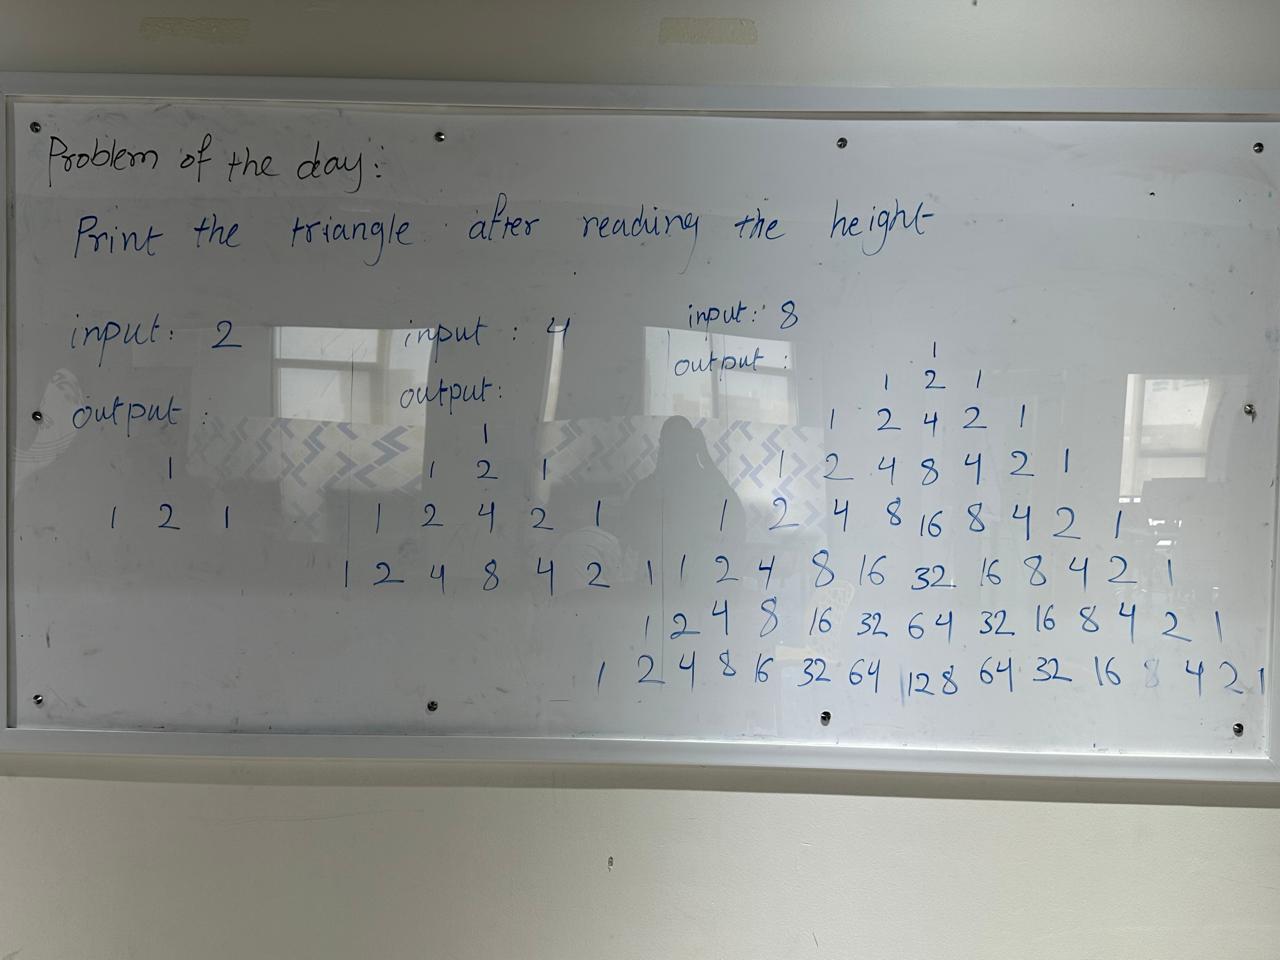 Problem of the day:
Print the triangle after reading the height
input: 2
output:
1
1 2 1
input: 4
output:
1
1 2 1
1 2 4 2 1
1 2 4 8 4 2 1
input: 8
output:
1
1 2 1
1 2 4 2 1
1 2 4 8 4 2 1
1 2 4 8 16 8 4 2 1
1 2 4 8 16 32 16 8 4 2 1
1 2 4 8 16 32 64 32 16 8 4 2 1
1 2 4 8 16 32 64 128 64 32 16 8 4 2 1